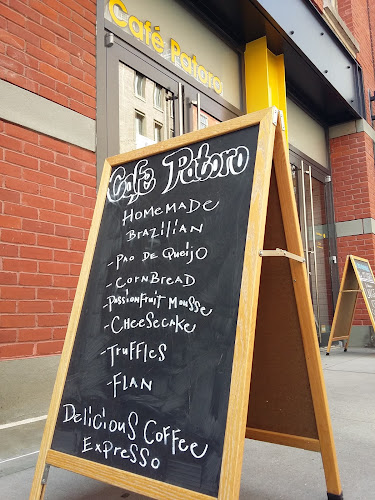 Café Patoro
Cafe Patoro
Homemade
Brazilian
- Pao de Queijo
- CornBread
- Passionfruit Mousse
- Cheesecake
- Truffles
- Flan
Delicious Coffee
Expresso